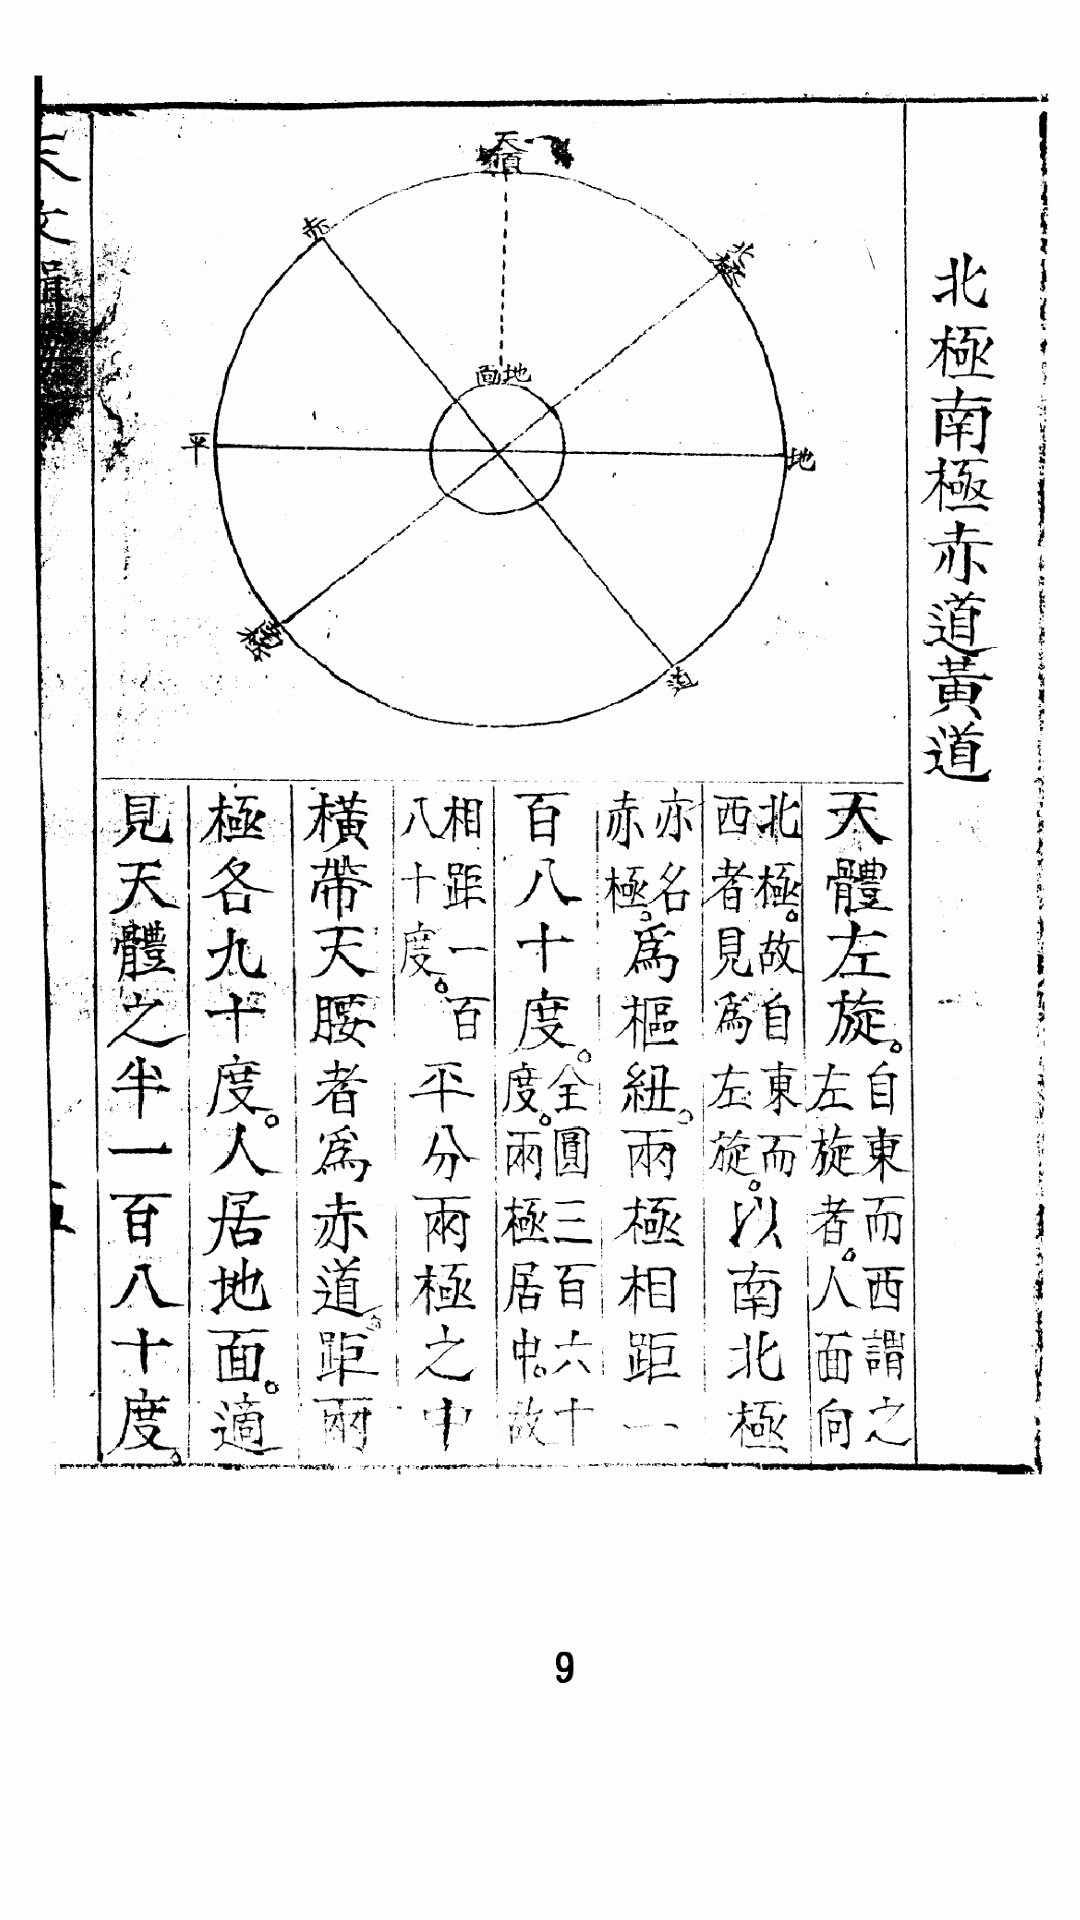 北極南極赤道黃道
天頂
赤
北極
地面
平
地
南極
道
天體左旋。自東而西謂之左旋者。人面向
北極。故自東而西者見爲左旋。以南北極
亦名赤極。爲樞紐。兩極相距一
百八十度。全圓三百六十度。兩極居中。故
相距一百八十度。平分兩極之中
橫帶天腰者爲赤道。距兩
極各九十度。人居地面。適
見天體之半一百八十度。
9